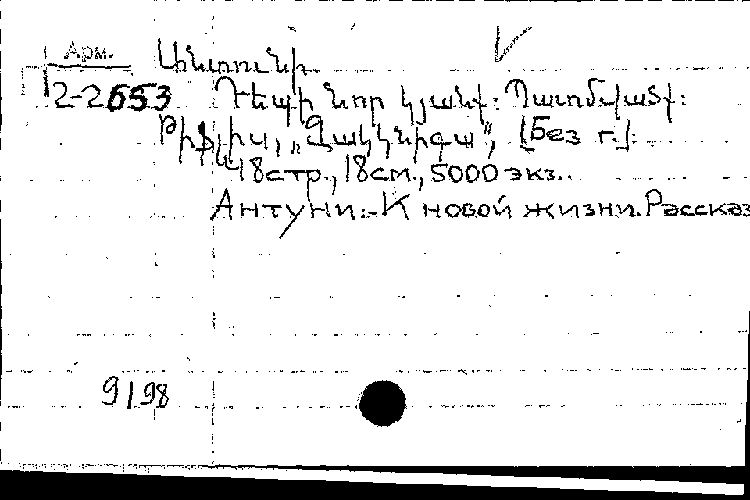 Арм.
Անտունի
2-2653 Դեպի նոր կյանք: Պատմվածք:
Թիֆլիս, „Զակկնիգա", [Без г.].
48стр., 18см., 5000 экз..
Антуни.-К новой жизни. Рассказ
9198